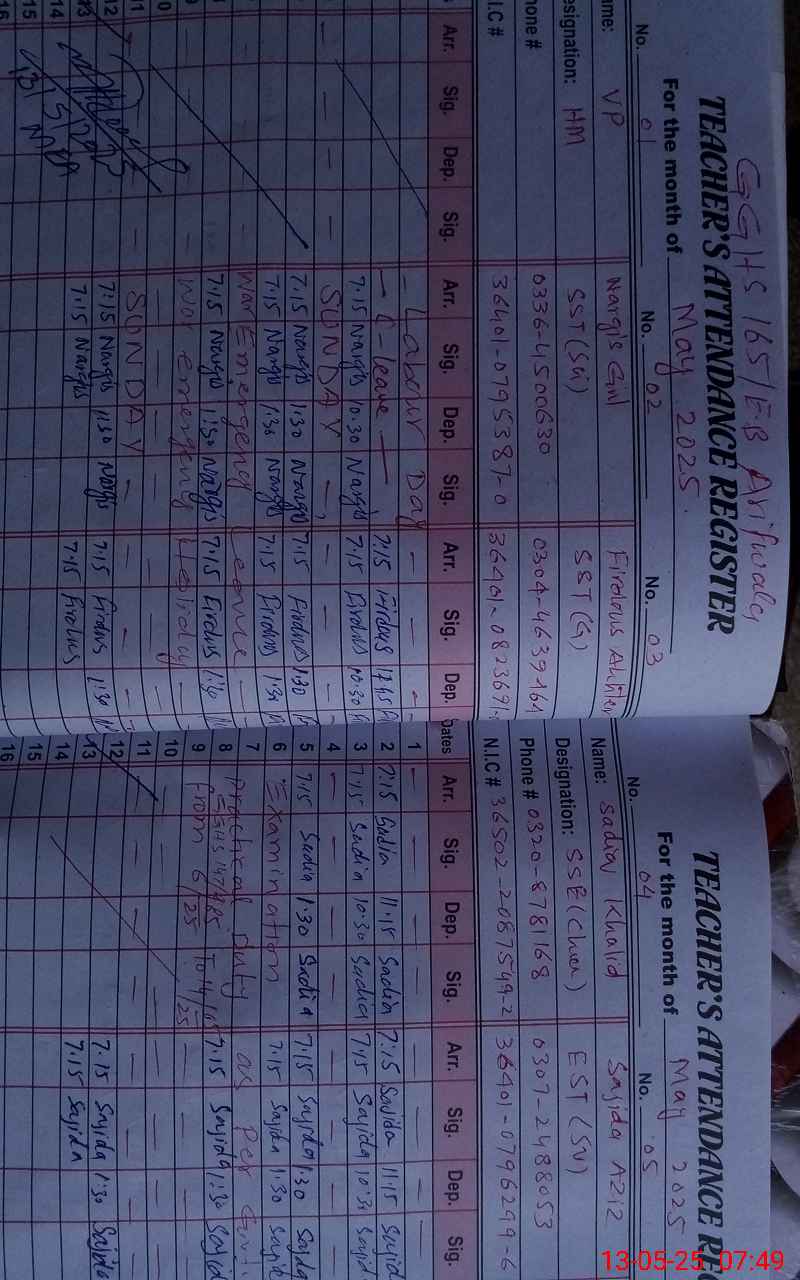 GGHS 165/EB Arifwala
TEACHER'S ATTENDANCE REGISTER
For the month of May 2025
No. 01 No. 02 No. 03
Name: VP Nargis Gul Firdous Akhter
Designation: HM SST (Sci) SST (G)
Phone # 0336-4500630 0304-4639161
N.I.C # 36401-0795387-0 36401-082369
Arr. Sig. Dep. Sig. Arr. Sig. Dep. Sig. Arr. Sig. Dep.
Labour Day
C-leave 7:15 Firdous
7:15 Nargis 10:30 Nargis 7:15 Firdous 10:30
SUNDAY
7:15 Nargis 1:30 Nargis 7:15 Firdous 1:30
7:15 Nargis 1:30 Nargis 7:15 Firdous 1:30
War Emergency Leave
7:15 Nargis 1:30 Nargis 7:15 Firdous 1:30
War emergency Holiday
SUNDAY
12 7:15 Nargis 1:30 Nargis 7:15 Firdous 1:30
13 7:15 Nargis 7:15 Firdous
14
15
16
TEACHER'S ATTENDANCE RE
For the month of May 2025
No. 04 No. 05
Name: Sadia Khalid Sajida Aziz
Designation: SSE (Chem) EST (SV)
Phone # 0320-8781168 0307-2488053
N.I.C # 36502-2087549-2 36401-0796299-6
Dates Arr. Sig. Dep. Sig. Arr. Sig. Dep. Sig.
1
2 7:15 Sadia 11:15 Sadia 7:15 Sajida 11:15 Sajid
3 7:15 Sadia 10:30 Sadia 7:15 Sajida 10:30 Sajid
4
5 7:15 Sadia 1:30 Sadia 7:15 Sajida 1:30 Sajida
6 Examination 7:15 Sajida 1:30 Sajid
7 Practical Duty as Per
8 GGHS 147/ 7:15 Sajida 1:30 Sajid
9 From 6/25 To
10
11
12 7:15 Sajida 1:30 Sajida
13 7:15 Sajida
14
15
16
13-05-25 07:49